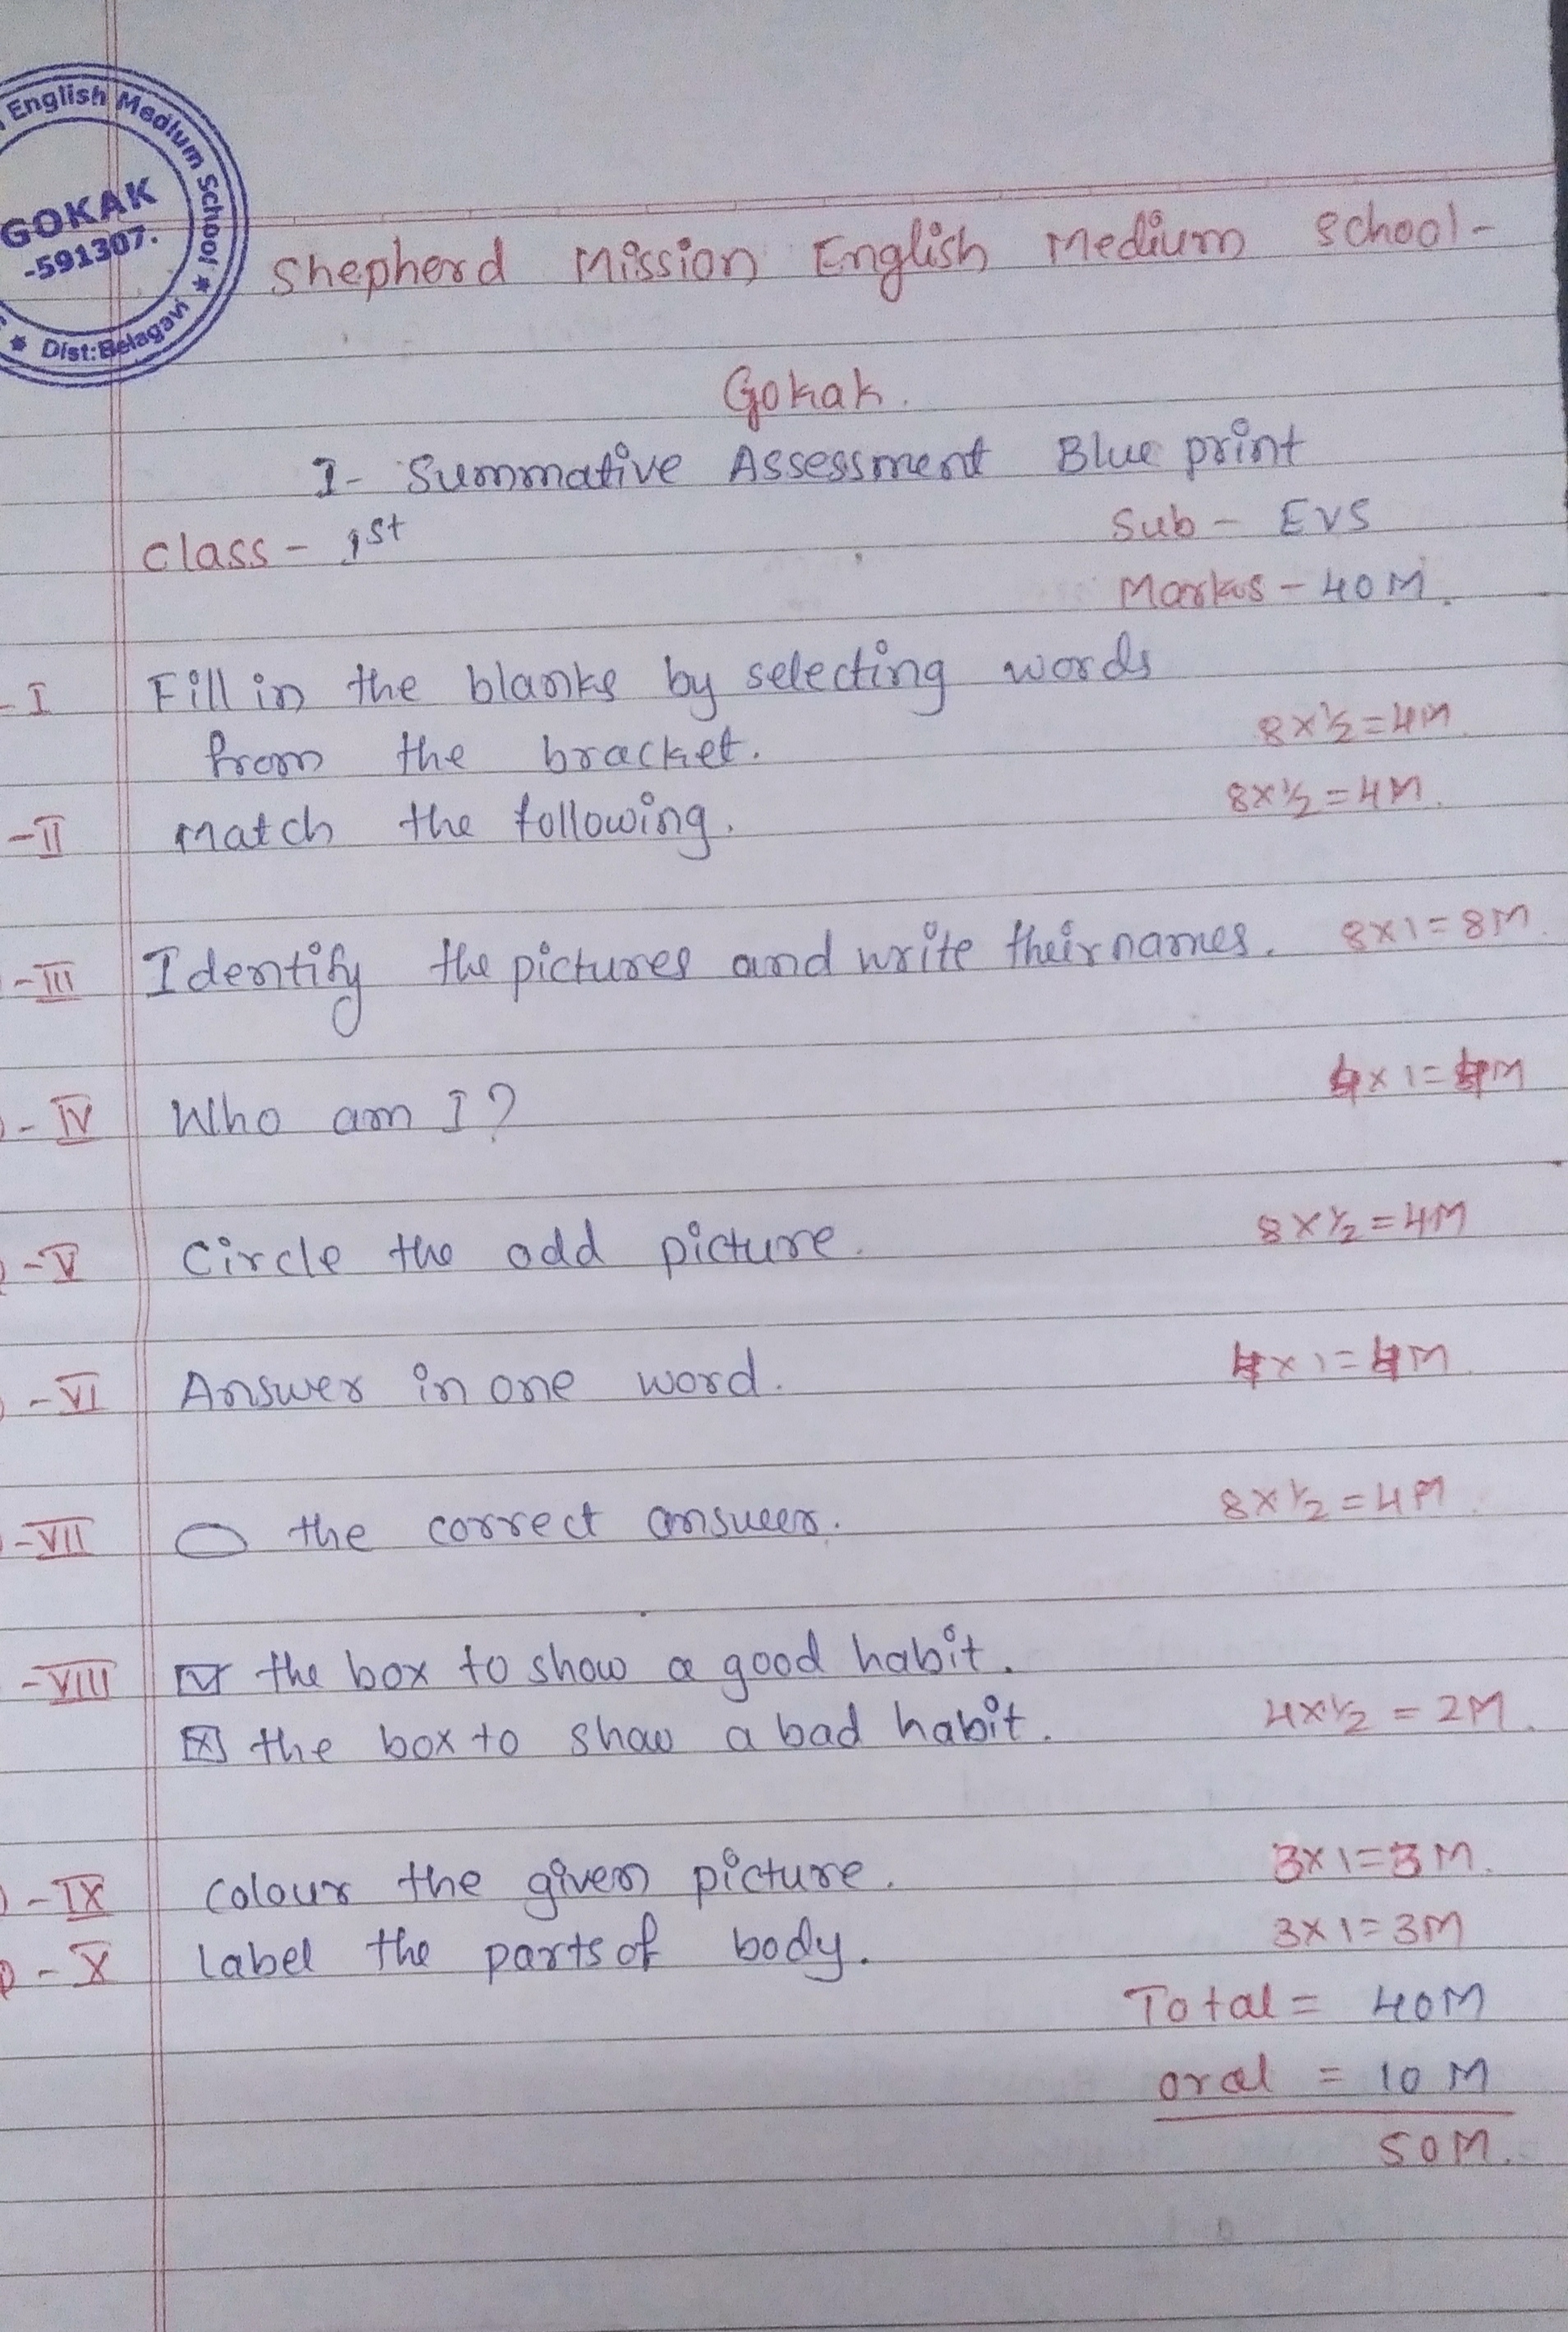 English Medium School
GOKAK
-591307.
Dist:Belagavi
Shepherd Mission English Medium School-
Gokak.
I- Summative Assessment Blue print
Class - 1st
Sub - EVS
Marks - 40M.
- I Fill in the blanks by selecting words
from the bracket. 8x½=4M.
- II Match the following. 8x½=4M.
- III Identify the pictures and write their names. 8x1=8M.
- IV Who am I? 4x1=4M
- V Circle the odd picture. 8x½=4M
- VI Answer in one word. 4x1=4M.
- VII the correct answer. 8x½=4M.
- VIII ☑ the box to show a good habit.
☒ the box to show a bad habit. 4x½ = 2M.
- IX Colour the given picture. 3x1=3M.
- X Label the parts of body. 3x1=3M
Total = 40M
oral = 10 M
50M.